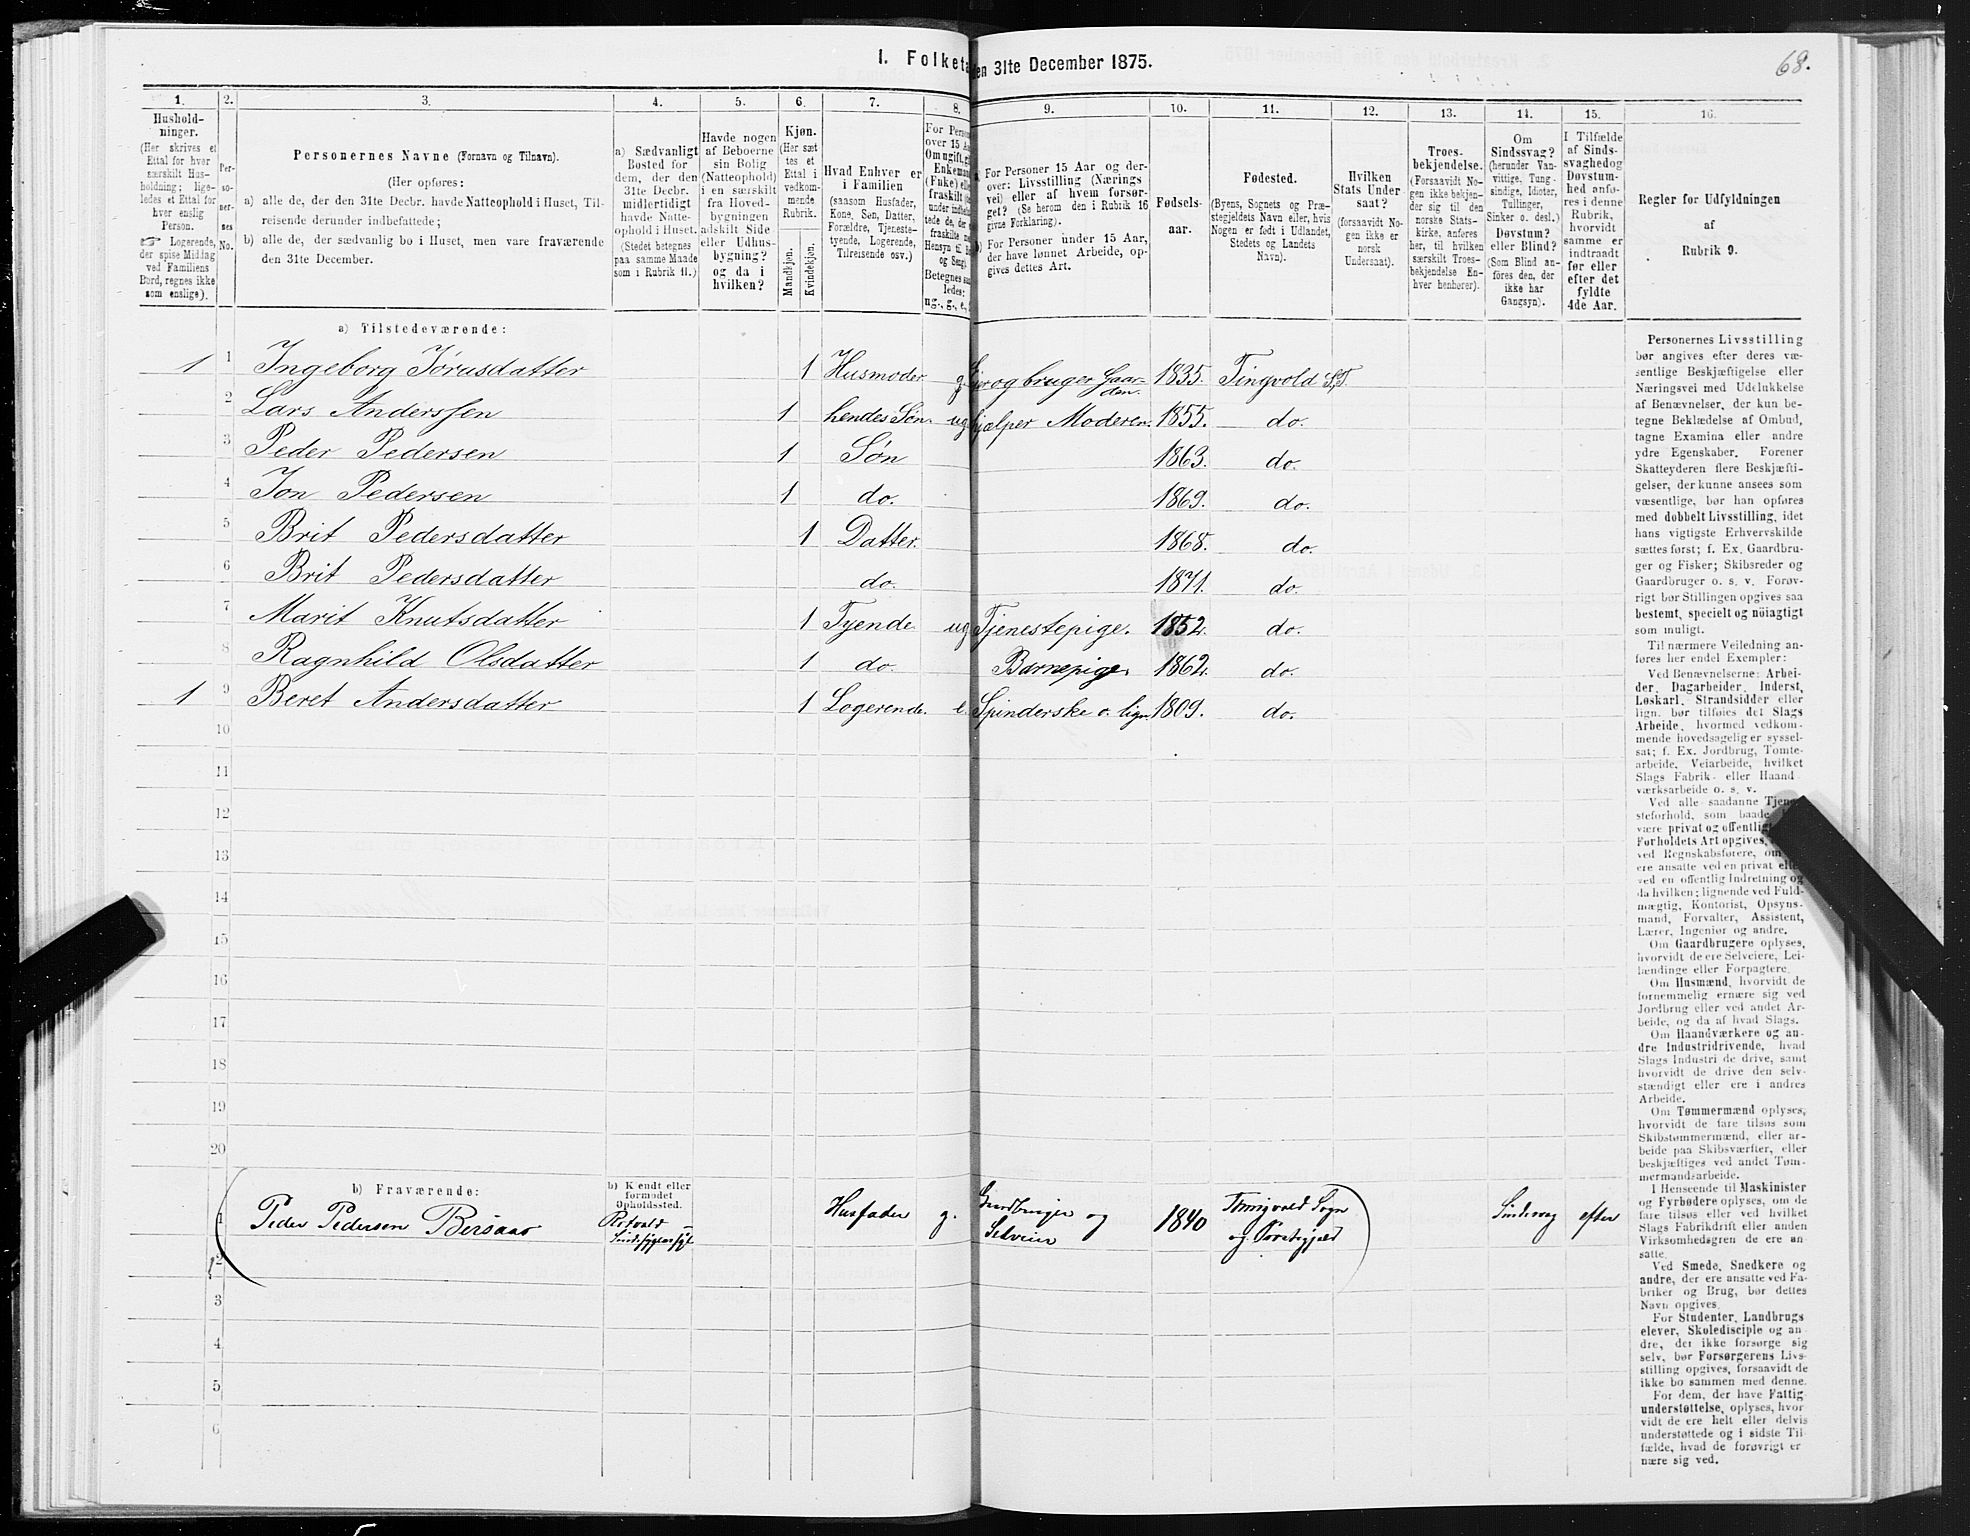 68.
I. Folketæ
den 31te December 1875.
1.
2.
3.
4.
5.
6.
7.
8.
9.
10.
11.
12.
13.
14.
15.
16.
Hushold-
ninger.
(Her skrives et
Ettal for hver
særskilt Hus-
holdning; lige-
ledes et Ettal for
hver enslig
Person.
☞ Logerende,
der spise Middag
ved Familiens
Bord, regnes ikke
som enslige).
Per-
so-
ner-
nes
No.
Personernes Navne (Fornavn og Tilnavn).
(Her opføres:
a) alle de, der den 31te Decbr. havde Natteophold i Huset, Til-
reisende derunder indbefattede;
b) alle de, der sædvanlig bo i Huset, men vare fraværende
den 31te December.
a) Sædvanligt
Bosted for
dem, der den
31te Decbr.
midlertidigt
havde Natte-
ophold i Huset.
(Stedet betegnes
paa samme Maade
som i Rubrik 11.)
Havde nogen
af Beboerne
sin Bolig
(Natteophold)
i en særskilt
fra Hoved-
bygningen
adskilt Side
eller Udhus-
bygning?
og da i
hvilken?
Kjøn.
(Her sæt
tes et
Ettal i
vedkom-
mende
Rubrik.
Mandkjøn.
Kvindekjøn.
Hvad Enhver er
i Familien
(saasom Husfader,
Kone, Søn, Datter,
Forældre, Tjeneste-
tyende, Logerende,
Tilreisende osv.)
For Perso
over 15 Aa
Om ugift, gi
Enkema
(Enke) elle
fraskilt
ledes:
ug., g., e.,
a) For Personer 15 Aar og der-
over: Livsstilling (Nærings
vei) eller af hvem forsør-
get? (Se herom den i Rubrik 16
givne Forklaring).
b) For Personer under 15 Aar,
der have lønnet Arbeide, op-
gives dettes Art.
Fødsels-
aar.
Fødested.
(Byens, Sognets og Præ-
stegjeldets Navn eller, hvis
Nogen er født i Udlandet,
Stedets og Landets
Navn).
Hvilken
Stats Under
saat?
(forsaavidt No-
gen ikke er
norsk
Undersaat).
Troes-
bekjendelse.
(Forsaavidt No-
gen ikke bekjen-
der sig til den
norske Stats-
kirke, anføres
her, til hvilken
særskilt Troes-
bekjendelse En-
hver henhører).
Om
Sindssvag?
(herunder Van-
vittige, Tung-
sindige, Idioter,
Tullinger,
Sinker o. desl.)
Døvstum?
eller Blind?
(Som Blind an-
føres den, der
ikke har
Gangsyn).
I Tilfælde
af Sinds-
svaghed og
Døvstum-
hed anfø-
res i denne
Rubrik,
hvorvidt
samme er
indtraadt
før eller
efter det
fyldte
4de Aar.
Regler for Udfyldningen
af
Rubrik 9.
a) Tilstedeværende:
1 1 Ingeborg Jørusdatter 1 Husmoder g. Eier og bruger Gaar-den. 1835. Tingvold S,T.
2 Lars Anderssen 1 hendes Søn. ug hjælper Moderen. 1855. do.
3 Peder Pedersen 1 Søn 1863. do.
4 Jon Pedersen 1 do. 1869. do.
5 Brit Pedersdatter 1 Datter. 1868. do.
6 Brit Pedersdatter do. 1871. do.
7 Marit Knutsdatter 1 Tyende ug Tjenestepige. 1852. do.
8 Ragnhild Olsdatter 1 do. Barnepige 1862. do.
1 9 Beret Andersdatter 1 Logerende. e. Spinderske o. lign. 1809. do.
10
11
12
13
14
15
16
17
18
19
20
b) Fraværende:
b) Kendt eller
formodet
Opholdssted.
1 Peder Pedersen Bersaas Husfader g. Selveier 1840 Tingvold Sogn og Præstegjæld Sindssvag efter
2
3
4
5
6
Personernes Livsstilling
bør angives efter deres væ-
sentlige Beskjæftigelse eller
Næringsvei med Udelukkelse
af Benævnelser, der kun be-
tegne Beklædelse af Ombud,
tagne Examina eller andre
ydre Egenskaber. Forener
Skatteyderen flere Beskjæfti-
gelser, der kunne ansees som
væsentlige, bør han opføres
med dobbelt Livsstilling, idet
hans vigtigste Erhvervskilde
sættes først; f. Ex. Gaardbru-
ger og Fisker; Skibsreder og
Gaardbruger o. s. v. Forøv-
rigt bør Stillingen opgives saa
bestemt, specielt og nöiagtigt
som muligt.
Til nærmere Veiledning an-
føres her endel Exempler:
Ved Benævnelserne: Arbei-
der, Dagarbeider, Inderst,
Løskarl, Strandsidder eller
lign. bør tilføies det Slags
Arbeide, hvormed vedkom-
mende hovedsagelig er syssel-
sat; f. Ex. Jordbrug, Tomte-
arbeide, Veiarbeide, hvilket
Slags Fabrik- eller Haand-
værksarbeide o. s. v.
Ved alle saadanne Tjene-
steforhold, som baade
være privat og offentlig
Forholdets Art opgives,
ved Regnskabsførere, om
ere ansatte ved en privat elle
ved en offentlig Indretning og
da hvilken; lignende ved Fuld-
mægtig, Kontorist, Opsyns-
mand, Forvalter, Assistent,
Lærer, Ingeniør og andre.
Om Gaardbrugere oplyses,
hvorvidt de ere Selveiere, Lei-
lændinge eller Forpagtere.
Om Husmænd, hvorvidt de
fornemmelig ernære sig ved
Jordbrug eller ved andet Ar-
beide, og da af hvad Slags.
Om Haandværkere og an-
dre Industridrivende, hvad
Slags Industri de drive, samt
hvorvidt de drive den selv-
stændigt eller ere i andres
Arbeide.
Om Tømmermænd oplyses,
hvorvidt de fare tilsøs som
Skibstømmermænd, eller ar-
beide paa Skibsværfter, eller
beskjæftiges ved andet Tøm-
mermandsarbeide.
I Henseende til Maskinister
og Fyrbødere oplyses, om de
fare tilsøs eller ved hvilket
Slags Fabrikdrift eller anden
Virksomhedsgren de ere an-
satte.
Ved Smede, Snedkere og
andre, der ere ansatte ved Fa-
briker og Brug, bør dettes
Navn opgives.
For Studenter, Landbrugs
elever, Skoledisciple og an-
dre, der ikke forsørge sig
selv, bør Forsørgerens Livs-
stilling opgives, forsaavidt de
ikke bo sammen med denne.
For dem, der have Fattig-
understøttelse, oplyses, hvor-
vidt de ere helt eller delvis
understøttede og i sidste Til-
fælde, hvad de forøvrigt er
nære sig ved.